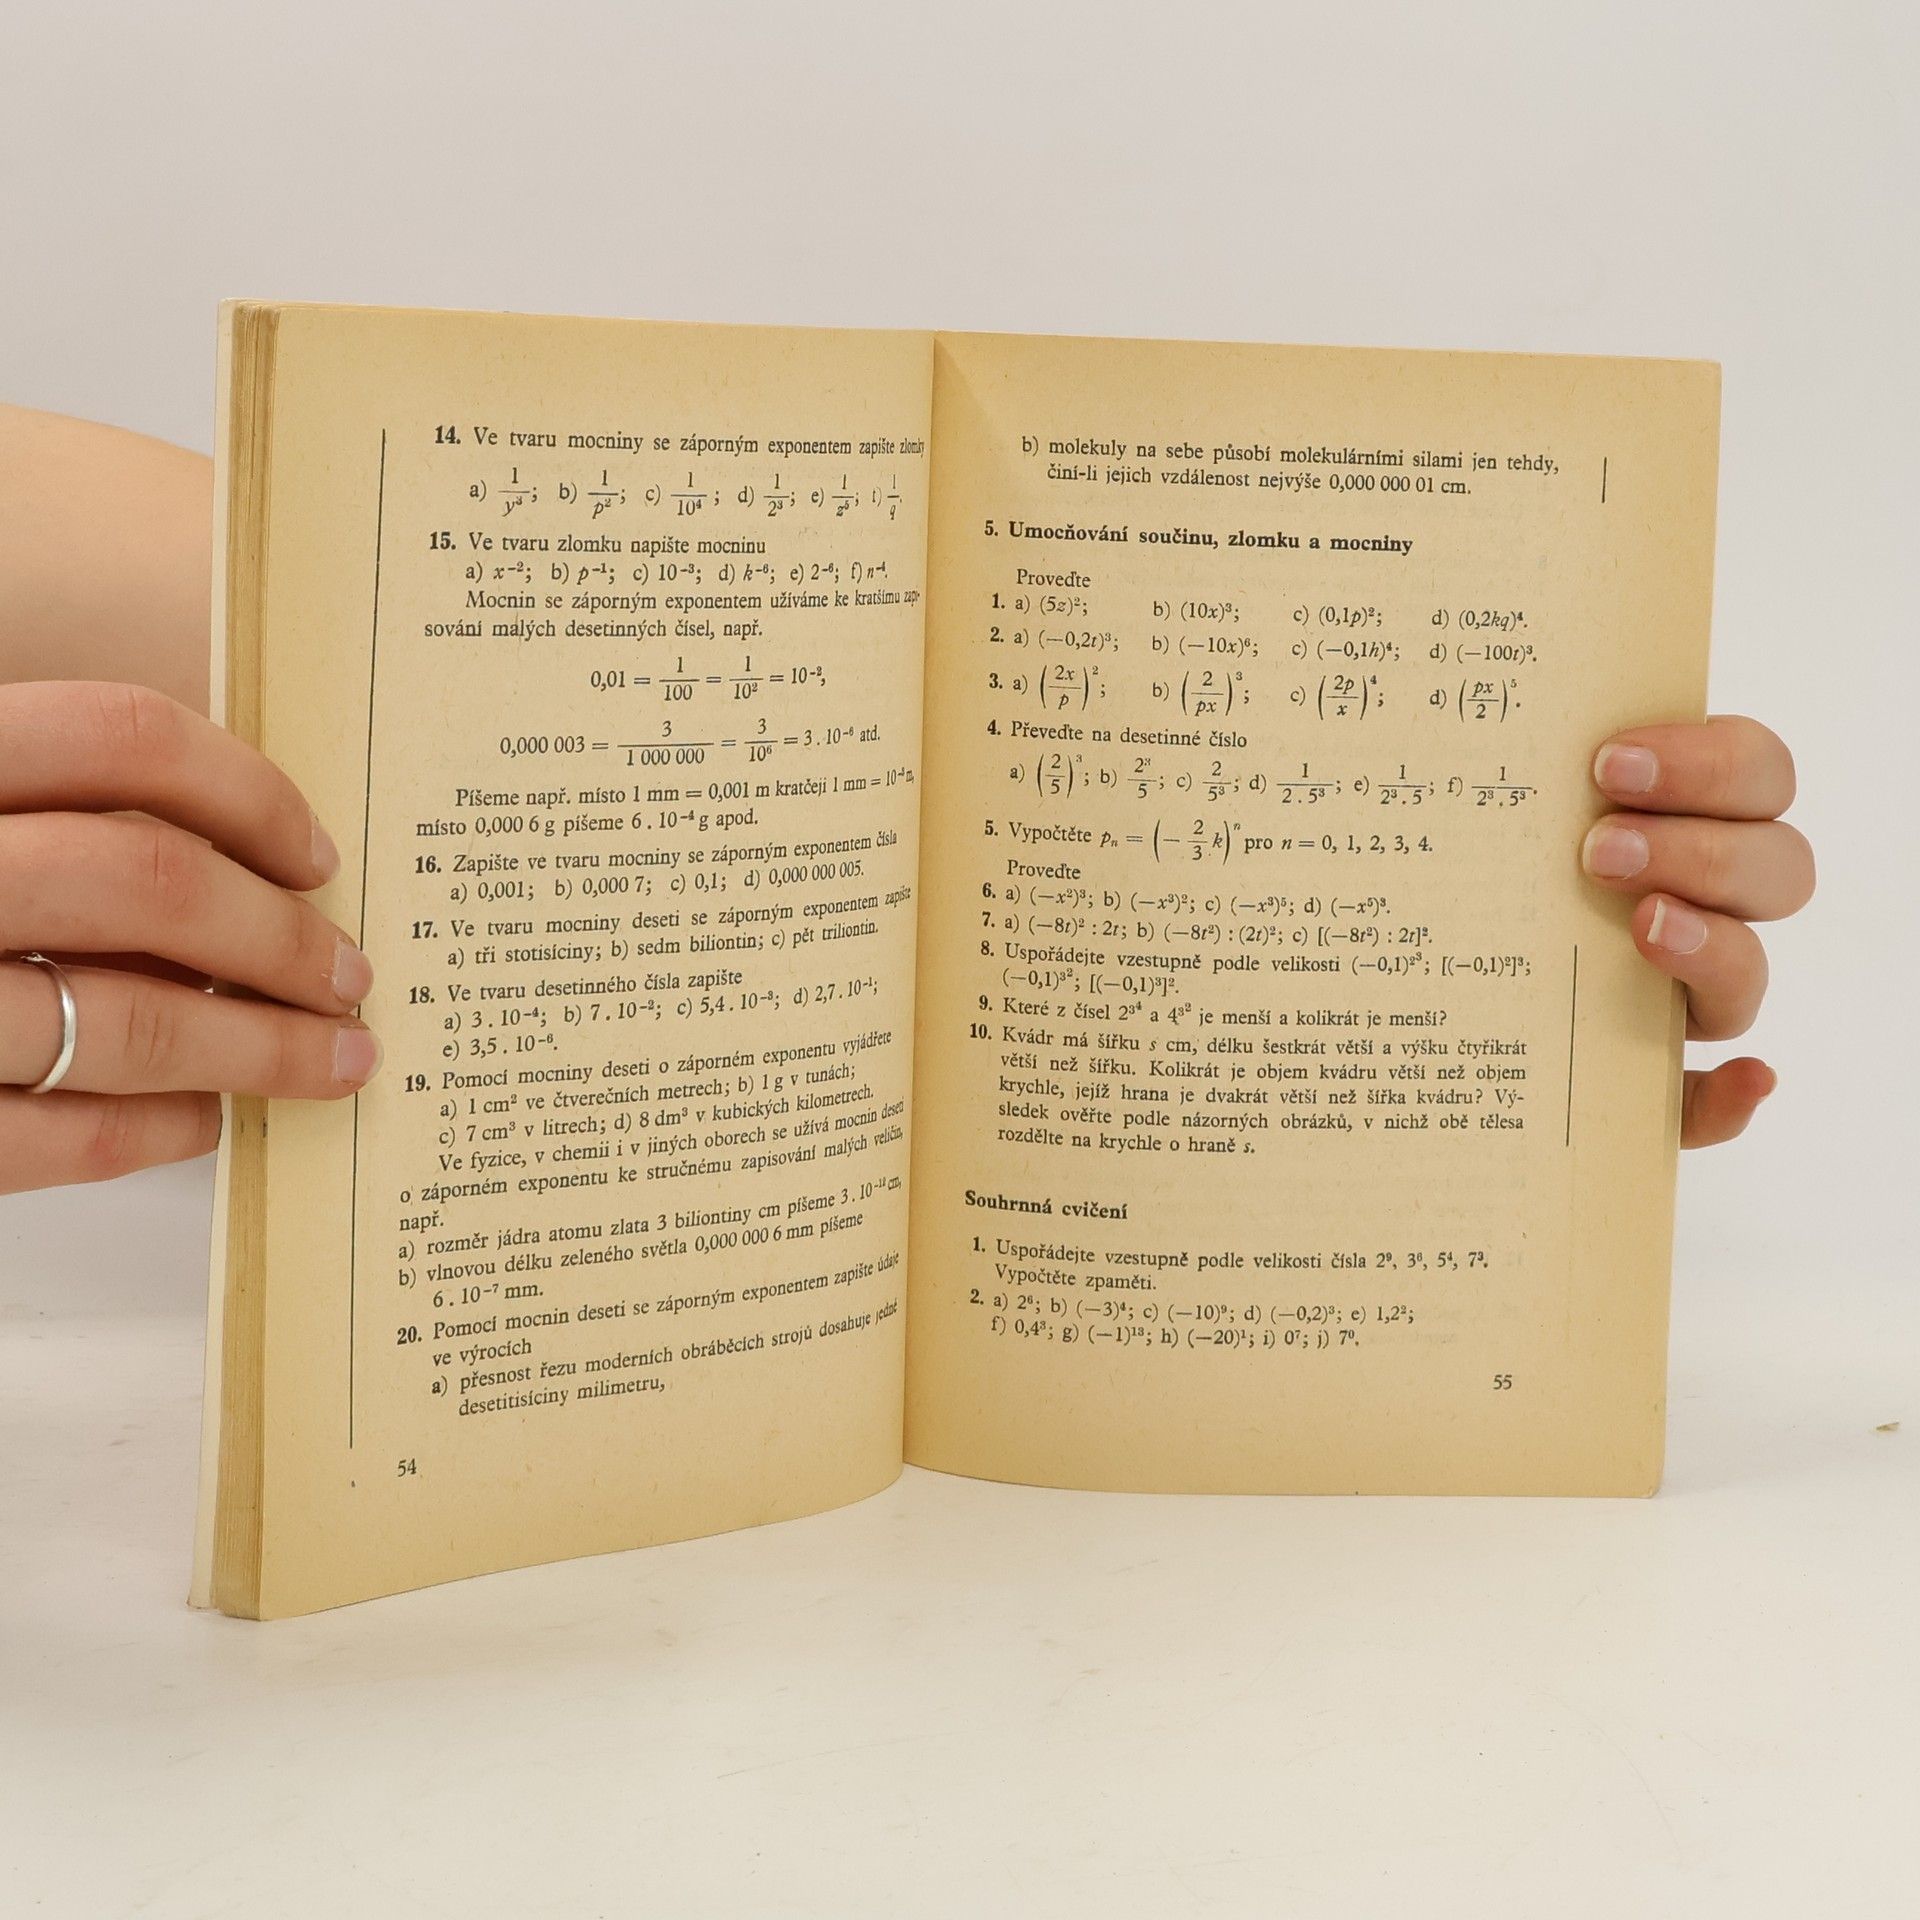 14. Ve tvaru mocniny se záporným exponentem zapište zlomky
a) 1/y³; b) 1/p²; c) 1/10⁴; d) 1/2³; e) 1/z⁵; f) 1/q.
15. Ve tvaru zlomku napište mocninu
a) x⁻²; b) p⁻¹; c) 10⁻³; d) k⁻⁶; e) 2⁻⁶; f) n⁻⁴.
Mocnin se záporným exponentem užíváme ke kratšímu zapi-
sování malých desetinných čísel, např.
0,01 = 1/100 = 1/10² = 10⁻²,
0,000 003 = 3/1 000 000 = 3/10⁶ = 3 . 10⁻⁶ atd.
Píšeme např. místo 1 mm = 0,001 m kratčeji 1 mm = 10⁻³ m,
místo 0,000 6 g píšeme 6 . 10⁻⁴ g apod.
16. Zapište ve tvaru mocniny se záporným exponentem čísla
a) 0,001; b) 0,000 7; c) 0,1; d) 0,000 000 005.
17. Ve tvaru mocniny deseti se záporným exponentem zapište
a) tři stotisíciny; b) sedm biliontin; c) pět triliontin.
18. Ve tvaru desetinného čísla zapište
a) 3 . 10⁻⁴; b) 7 . 10⁻²; c) 5,4 . 10⁻³; d) 2,7 . 10⁻¹;
e) 3,5 . 10⁻⁶.
19. Pomocí mocniny deseti o záporném exponentu vyjádřete
a) 1 cm² ve čtverečních metrech; b) 1 g v tunách;
c) 7 cm³ v litrech; d) 8 dm³ v kubických kilometrech.
Ve fyzice, v chemii i v jiných oborech se užívá mocnin deseti
o záporném exponentu ke stručnému zapisování malých veličin,
např.
a) rozměr jádra atomu zlata 3 biliontiny cm píšeme 3 . 10⁻¹² cm,
b) vlnovou délku zeleného světla 0,000 000 6 mm píšeme
6 . 10⁻⁷ mm.
20. Pomocí mocnin deseti se záporným exponentem zapište údaje
ve výrocích
a) přesnost řezu moderních obráběcích strojů dosahuje jedné
desetitisíciny milimetru,
54
b) molekuly na sebe působí molekulárními silami jen tehdy,
činí-li jejich vzdálenost nejvýše 0,000 000 01 cm.
5. Umocňování součinu, zlomku a mocniny
Proveďte
1. a) (5z)²; b) (10x)³; c) (0,1p)²; d) (0,2kq)⁴.
2. a) (—0,2t)³; b) (—10x)⁶; c) (—0,1h)⁴; d) (—100t)³.
3. a) (2x/p)²; b) (2/px)³; c) (2p/x)⁴; d) (px/2)⁵.
4. Převeďte na desetinné číslo
a) (2/5)³; b) 2³/5; c) 2/5³; d) 1/(2 . 5³); e) 1/(2³ . 5); f) 1/(2³ . 5³).
5. Vypočtěte pₙ = (— 2/3 k)ⁿ pro n = 0, 1, 2, 3, 4.
Proveďte
6. a) (—x²)³; b) (—x³)²; c) (—x³)⁵; d) (—x⁵)³.
7. a) (—8t)² : 2t; b) (—8t²) : (2t)²; c) [(—8t²) : 2t]².
8. Uspořádejte vzestupně podle velikosti (—0,1)^2^3; [(—0,1)²]³;
(—0,1)^3^2; [(—0,1)³]².
9. Které z čísel 2^3^4 a 4^3^2 je menší a kolikrát je menší?
10. Kvádr má šířku s cm, délku šestkrát větší a výšku čtyřikrát
větší než šířku. Kolikrát je objem kvádru větší než objem
krychle, jejíž hrana je dvakrát větší než šířka kvádru? Vý-
sledek ověřte podle názorných obrázků, v nichž obě tělesa
rozdělte na krychle o hraně s.
Souhrnná cvičení
1. Uspořádejte vzestupně podle velikosti čísla 2⁹, 3⁶, 5⁴, 7³.
Vypočtěte zpaměti.
2. a) 2⁶; b) (—3)⁴; c) (—10)⁹; d) (—0,2)³; e) 1,2²;
f) 0,4³; g) (—1)¹³; h) (—20)¹; i) 0⁷; j) 7⁰.
55